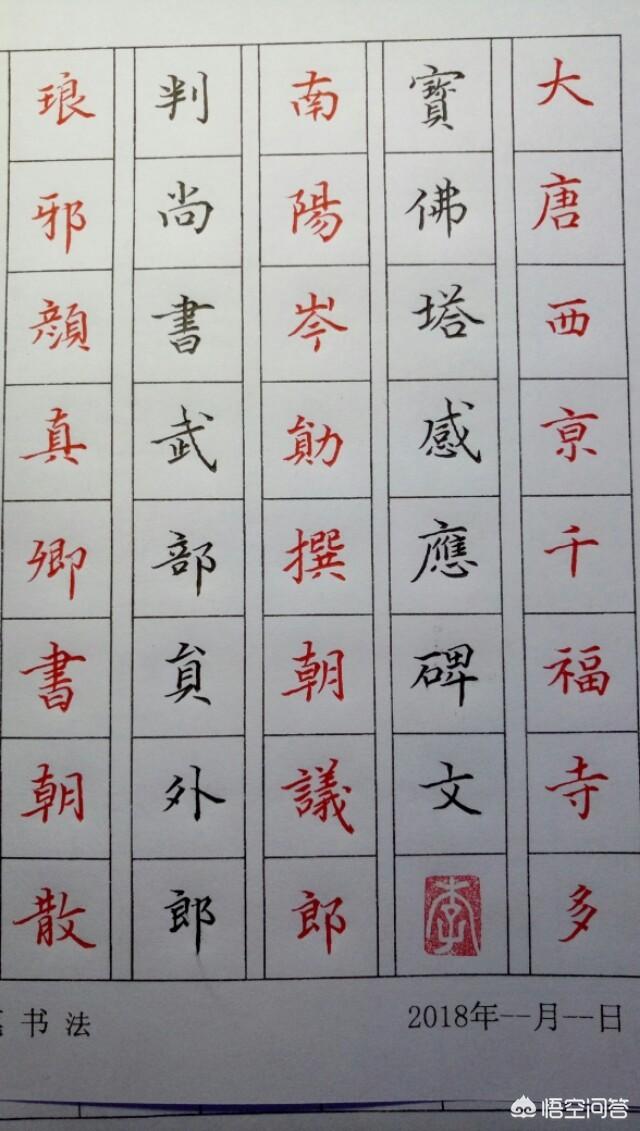 大唐西京千福寺多
寳佛塔感應碑文
南陽岑勛撰朝議郎
判尚書武部貟外郎
琅邪顔真卿書朝散
书法
2018年--月--日
悟空问答